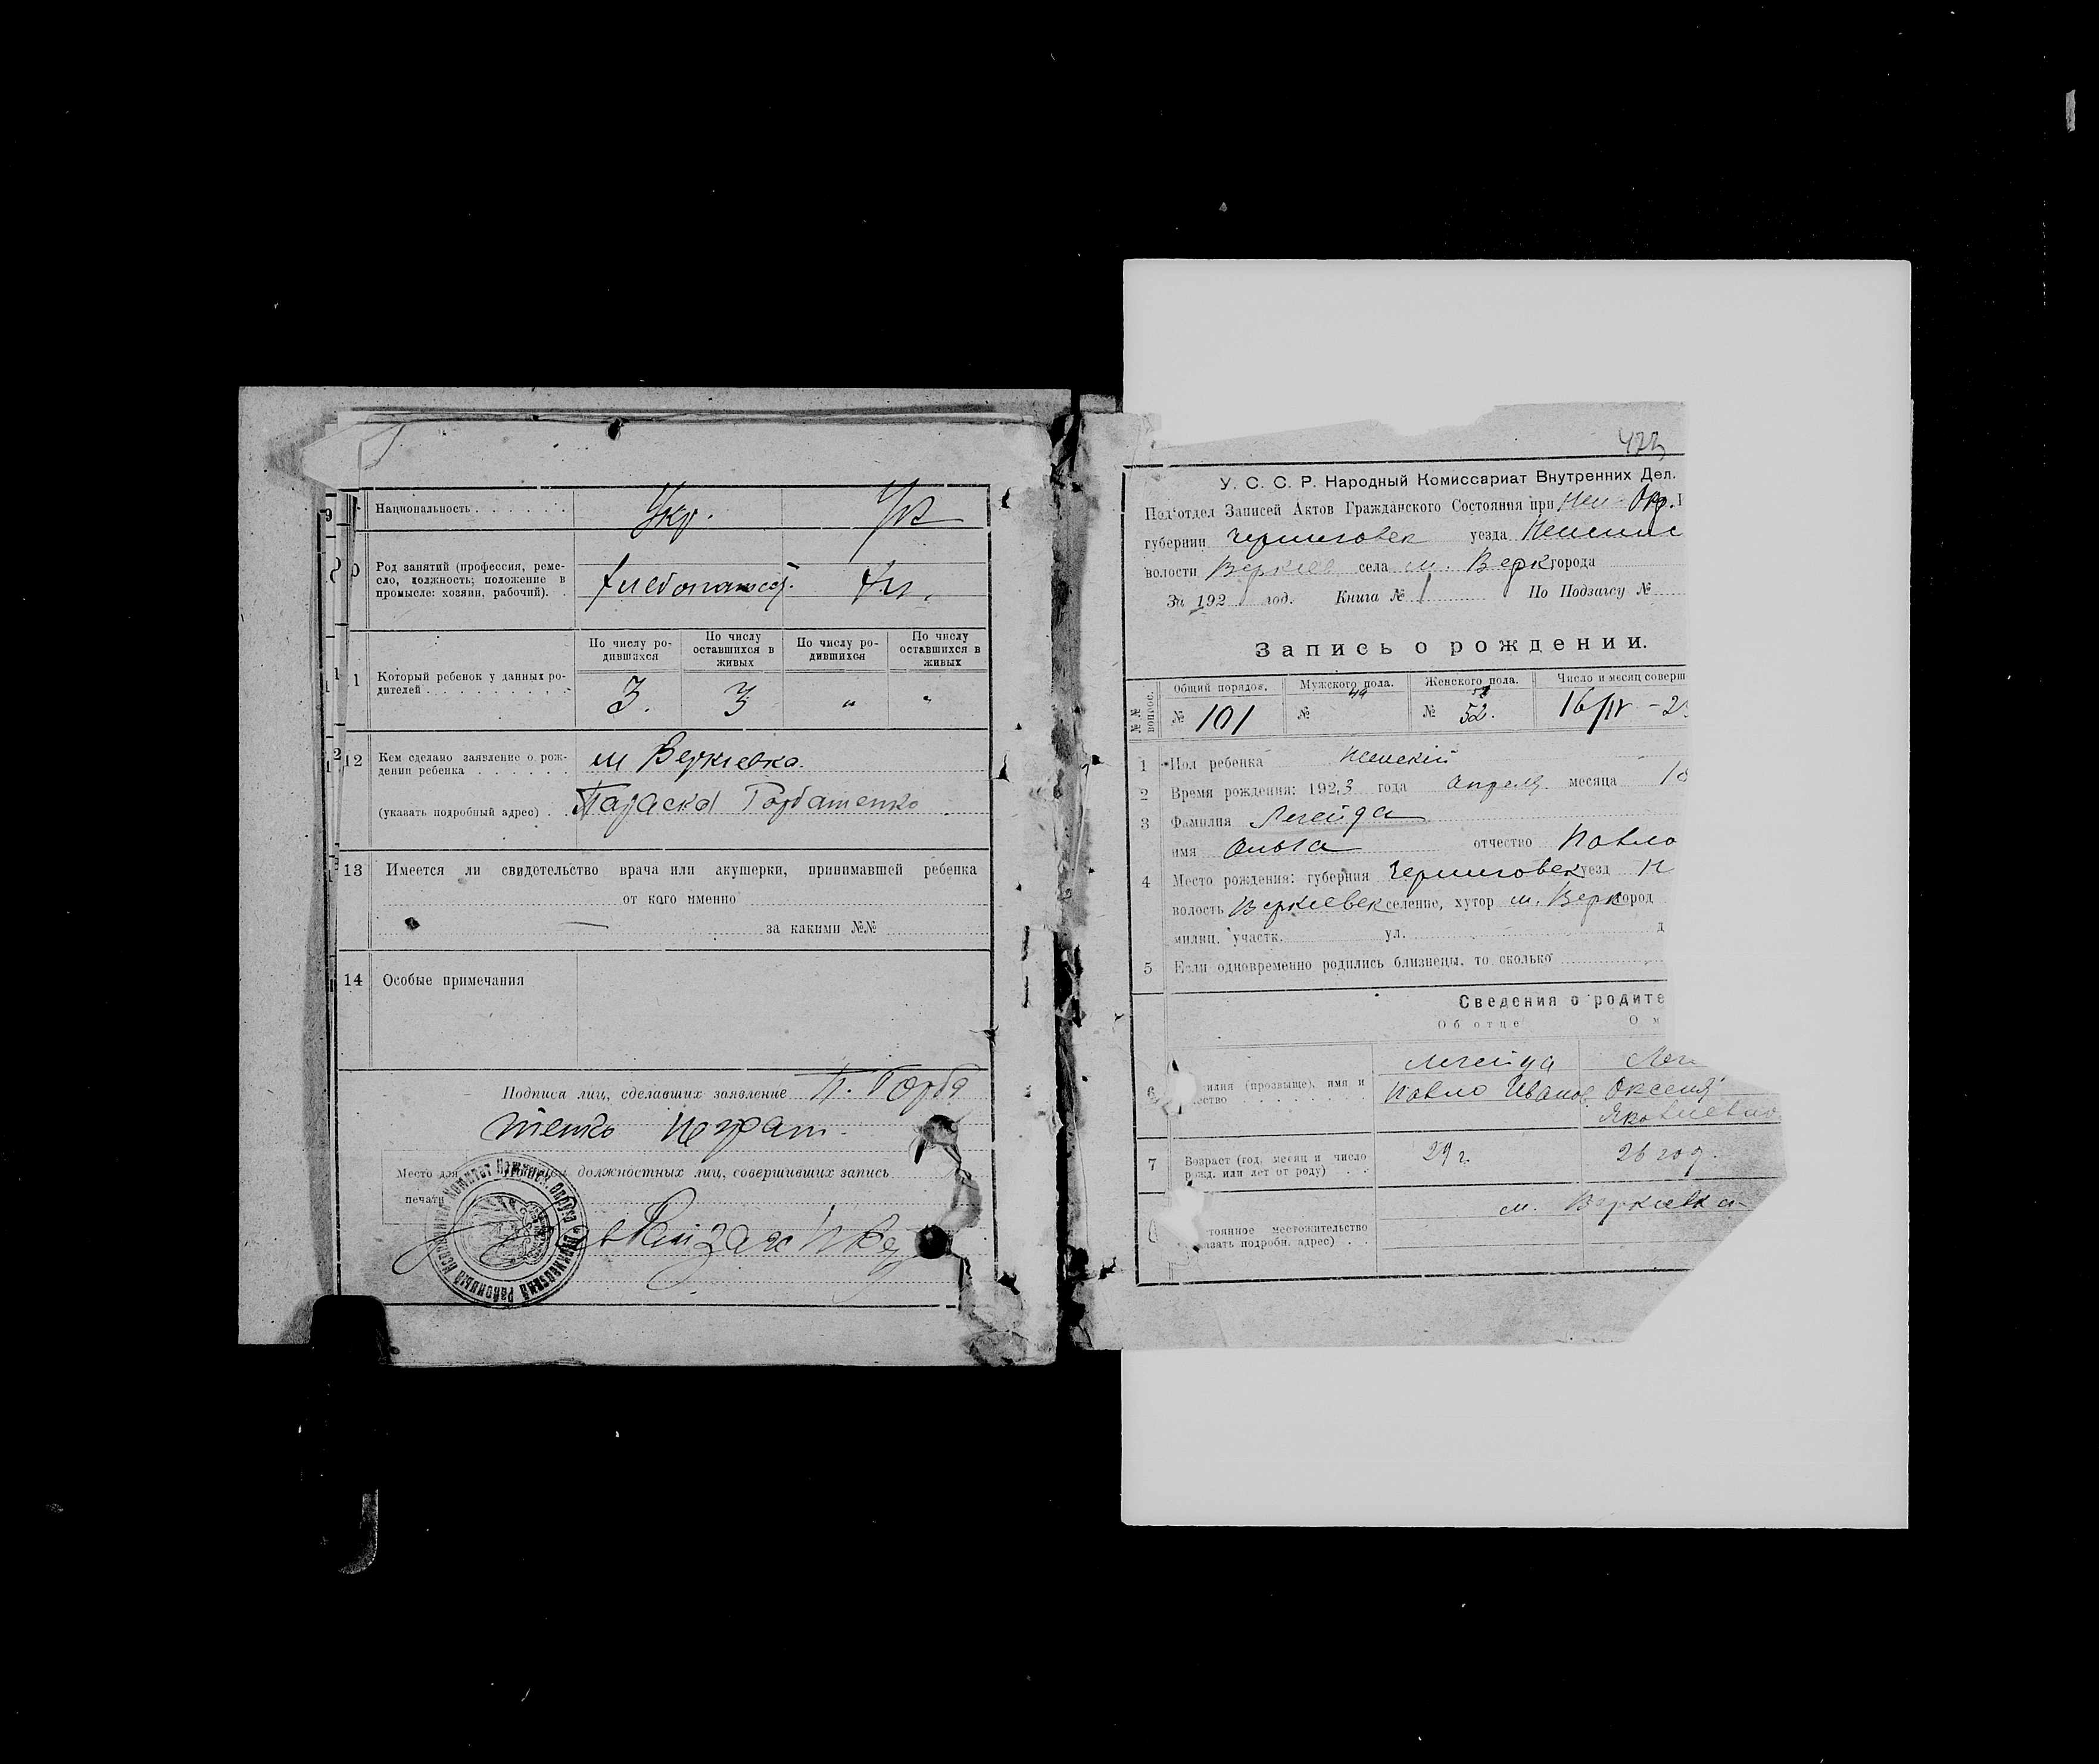 Национальность
Укр.
Род занятий (профессия, реме-
сло, должность; положение в
промысле: хозяин, рабочий).
Который ребенок у данных ро-
дителей
По числу ро-
дившихся
По числу
оставшихся в
живых
По числу ро-
дившихся
По числу
оставшихся в
живых
3. 3 " "
12 Кем сделано заявление о рож-
дении ребенка
м Веркиевка.
(указать подробный адрес)
Параска Горбатенко
13 Имеется ли свидетельство врача или акушерки, принимавшей ребенка
от кого именно
за какими №№
14 Особые примечания
Подписа лиц, сделавших заявление П. Горба
тенко
Место для
печати
должностных лиц, совершивших запись
473
У. С. С. Р. Народный Комиссариат Внутренних Дел.
Под'отдел Записей Актов Гражданского Состояния при Неж Окр.
губернии Черниговск уезда Нежинс
волости Веркиев села м. Верк города
За 192 год. Книга № 1 По Подзагсу №
Запись о рождении.
№№ вопрос.
Общий порядов. Мужского пола. Женского пола. Число и месяц соверш
№ 101 № 49 № 52. 16/IV - 2
1 Пол ребенка женский
2 Время рождения: 1923 года апреля месяца
3 Фамилия Легейда
имя Ольга отчество Павло
4 Место рождения: губерния Черниговск уезд Н
волость Веркиевск селение, хутор м. Верк город
милиц. участк. ул. д
5 Если одновременно родились близнецы, то сколько
Сведения о родите
Об отце О м
6 милия (прозвыще), имя и
чество
Легейда
Павло Иванов
Леге
Оксения
Яковлевна
7 Возраст (год, месяц и число
рожд. или лет от роду)
29 г. 26 год.
тоянное местожительство
азать подробн. адрес)
м. Веркиевка